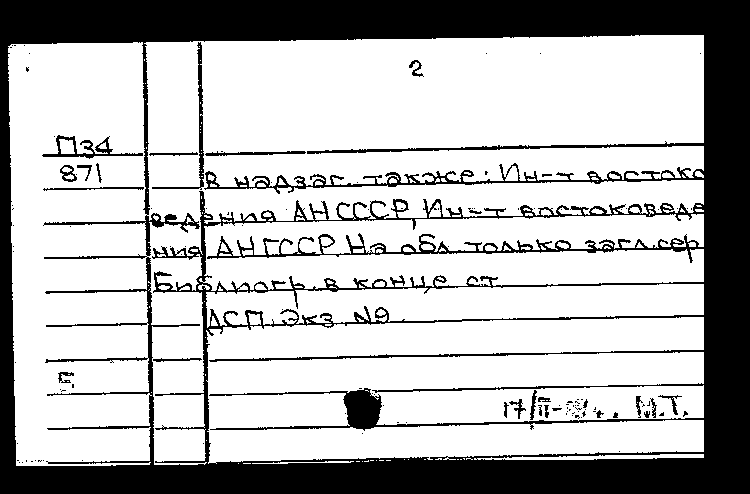 2
П34
871
В надзаг. также: Ин-т востоко
ведения АН СССР, Ин-т востоковеде
ния АН ГССР. На обл. только загл. сер
Библиогр. в конце ст.
ДСП. Экз. №9
17/II- М.Т.